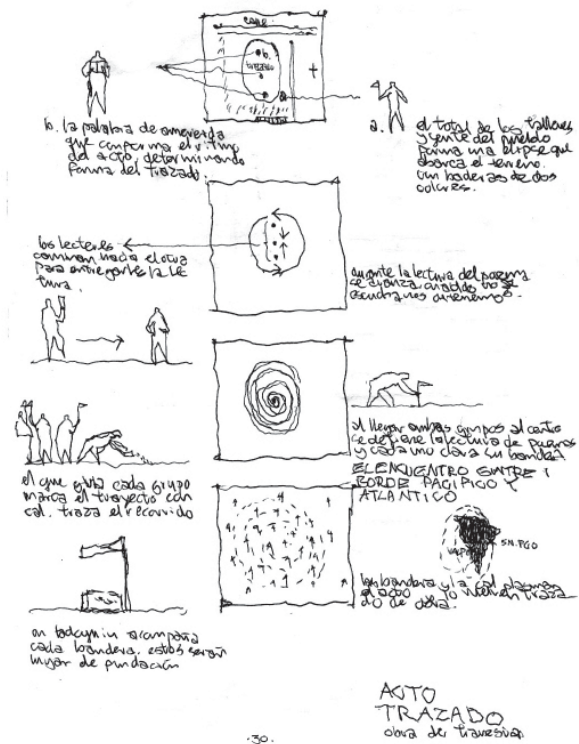 CALLE
b.
trazado
a
b. la palabra de amereida
que conforma el ritmo
del acto, determinando
forma del trazado.
a. el total de los talleres
y gente del pueblo
forma una elipse que
abarca el terreno.
con baderas de dos
colores.
los lectores
caminan hacia el otro
para entregarles la lec
tura.
durante la lectura del poema
se avanza cuando no se
escucha nos detenemos.
al llegar ambos grupos al centro
se detiene la lectura de poemas
y cada uno clava su bandera.
EL ENCUENTRO ENTRE
BORDE PACIFICO Y
ATLANTICO
el que guía cada grupo
marca el trayecto con
cal. traza el recorrido
SN. PGO
las bandera y la cal plasman
el acto y lo vuelven traza
do de obra.
un acompaña
cada bandera. estos serán
lugar de fundación
ACTO
TRAZADO
obra de travesía
.30.